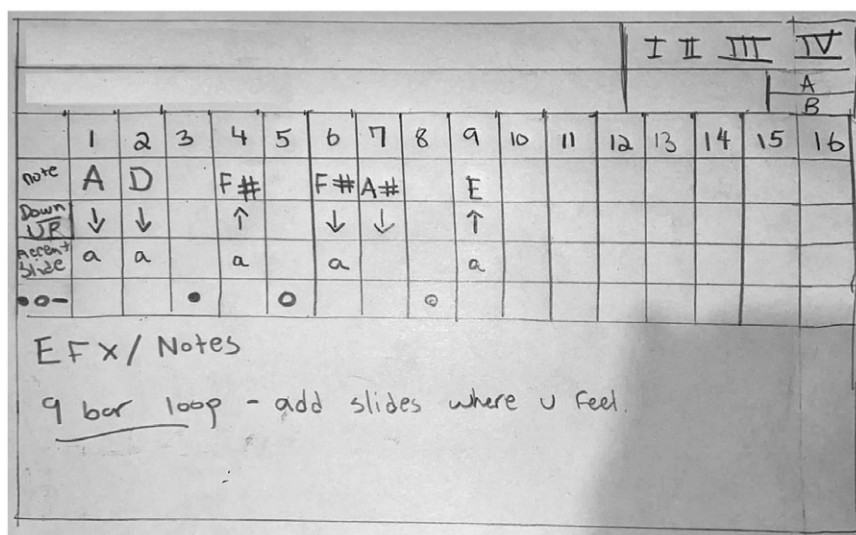 I II III IV
A
B
1 2 3 4 5 6 7 8 9 10 11 12 13 14 15 16
note A D F# F# A# E
Down
UP ↓ ↓ ↑ ↓ ↓ ↑
Accent
Slide a a a a a
●○- ● ○ ○
EFX/Notes
9 bar loop - add slides where u feel.